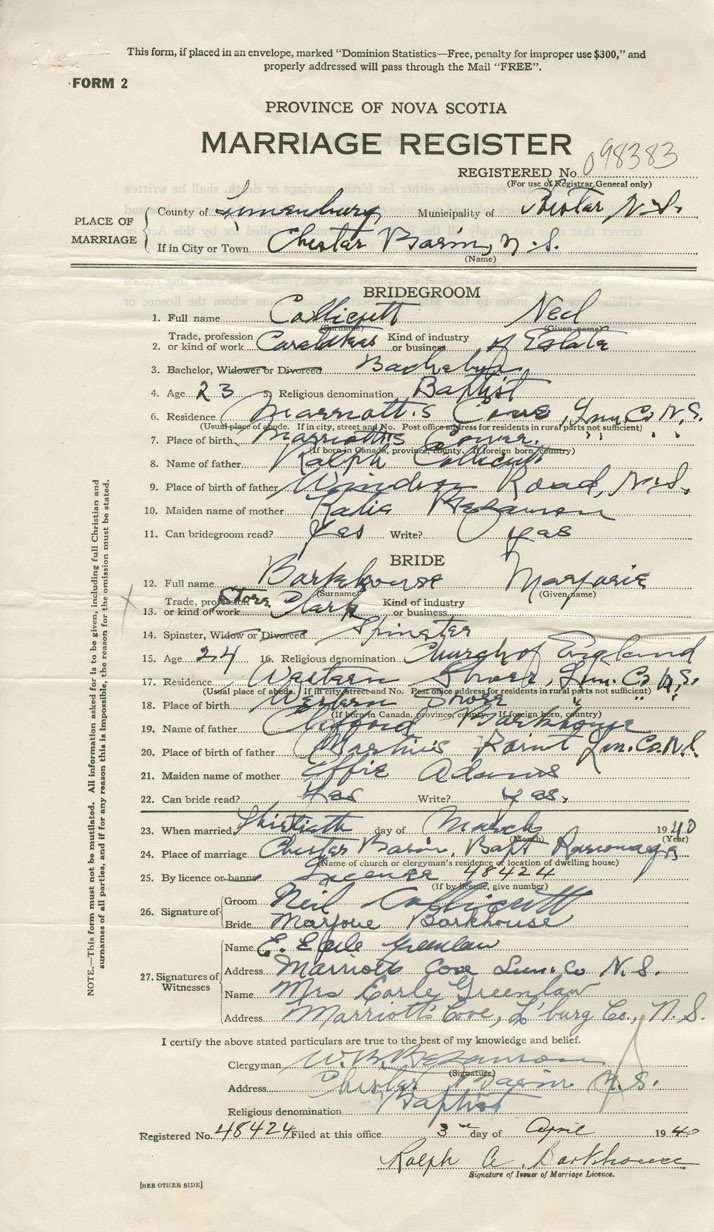 This form, if placed in an envelope, marked "Dominion Statistics—Free, penalty for improper use $300," and
properly addressed will pass through the Mail "FREE".
FORM 2
PROVINCE OF NOVA SCOTIA
MARRIAGE REGISTER
REGISTERED No. 098383
(For use of Registrar General only)
PLACE OF MARRIAGE
County of Lunenburg Municipality of Chester N.S.
If in City or Town Chester Basin, N.S.
(Name)
BRIDEGROOM
1. Full name Collicutt Neil
(Surname) (Given name)
2. Trade, profession or kind of work Caretaker Kind of industry or business of Estate
3. Bachelor, Widower or Divorced Bachelor
4. Age 23 Religious denomination Baptist
6. Residence Marriott's Cove, Lun. Co. N.S.
(Usual place of abode. If in city, street and No. Post office address for residents in rural parts not sufficient)
7. Place of birth Marriott's Cove. " " " "
(If born in Canada, province, county. If foreign born, country)
8. Name of father Ralph Collicutt
9. Place of birth of father Windsor Road, N.S.
10. Maiden name of mother Katie Bezanson
11. Can bridegroom read? Yes Write? yes
BRIDE
12. Full name Barkhouse Marjorie
(Surname) (Given name)
13. Trade, profession or kind of work Store Clark Kind of industry or business
14. Spinster, Widow or Divorced Spinster
15. Age 24 16. Religious denomination Church of England
17. Residence Western Shore, Lun. Co. N.S.
(Usual place of abode. If in city street and No. Post office address for residents in rural parts not sufficient)
18. Place of birth Western Shore " " "
(If born in Canada, province, county. If foreign born, country)
19. Name of father Clifford Barkhouse
20. Place of birth of father Martin's Point Lun. Co. N.S.
21. Maiden name of mother Effie Adams
22. Can bride read? Yes Write? yes,
23. When married Thirtieth day of March 1940
(Month) (Year)
24. Place of marriage Chester Basin, Bapt Parsonage
(Name of church or clergyman's residence or location of dwelling house)
25. By licence or banns License 48424
(If by licence, give number)
26. Signature of
Groom Neil Collicutt
Bride Marjorie Barkhouse
27. Signatures of Witnesses
Name E. Earle Greenlaw
Address Marriotts Cove Lun. Co N.S.
Name Mrs Earle Greenlaw
Address Marriott's Cove, L'burg Co., N.S.
I certify the above stated particulars are true to the best of my knowledge and belief.
Clergyman W.B. Bezanson
(Signature)
Address Chester Basin N.S.
Religious denomination Baptist
Registered No. 48424 Filed at this office 3rd day of April 1940
Ralph A Barkhouse
Signature of Issuer of Marriage Licence.
[SEE OTHER SIDE]
NOTE.—This form must not be mutilated. All information asked for is to be given, including full Christian and
surnames of all parties, and if for any reason this is impossible, the reason for the omission must be stated.